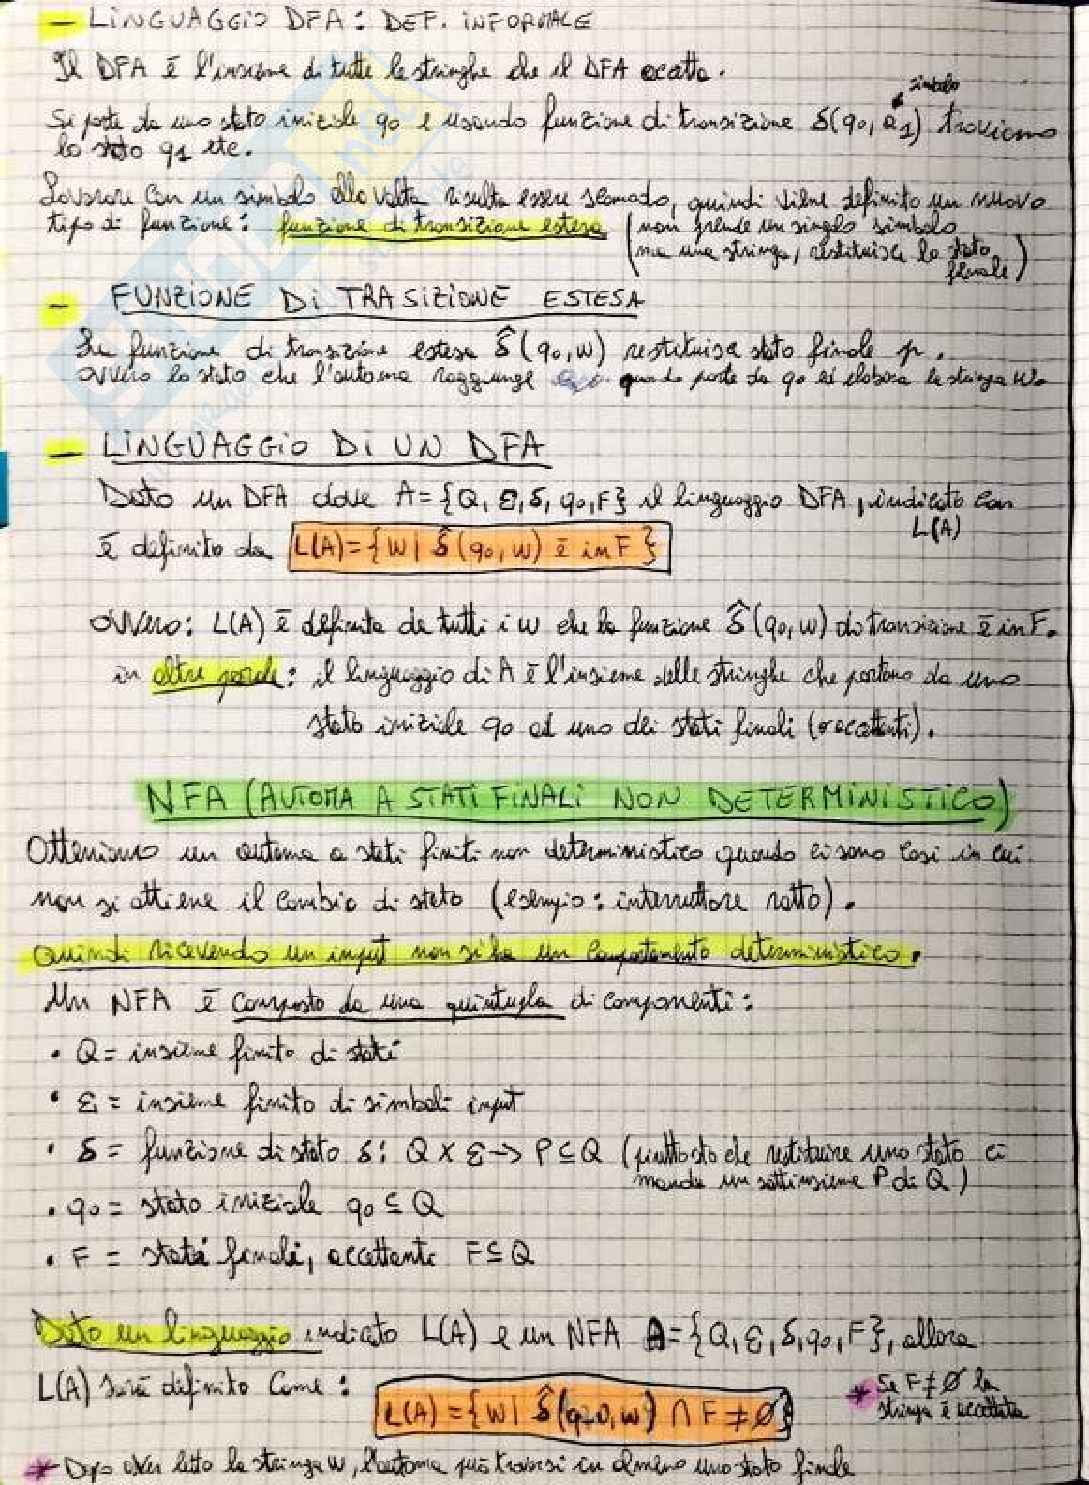 - LINGUAGGIO DFA: DEF. INFORMALE
Il DFA è l'insieme di tutte le stringhe che il DFA accetta.
simbolo
Si parte da uno stato iniziale q0 e usando funzione di transizione δ(q0, a1) troviamo
lo stato q1 etc.
Lavorare con un simbolo alla volta risulta essere scomodo, quindi viene definito un nuovo
tipo di funzione: funzione di transizione estesa (non prende un singolo simbolo
ma una stringa, restituisce lo stato
finale)
- FUNZIONE DI TRASIZIONE ESTESA
La funzione di transizione estesa δ̂(q0,w) restituisce stato finale p.
ovvero lo stato che l'automa raggiunge quando parte da q0 ed elabora la stringa w.
- LINGUAGGIO DI UN DFA
Dato un DFA dove A={Q, Σ, δ, q0, F} il linguaggio DFA, indicato con
L(A)
è definito da L(A)={w| δ̂(q0,w) è in F}
ovvero: L(A) è definita da tutti i w che la funzione δ̂(q0,w) di transizione è in F.
in altre parole: il linguaggio di A è l'insieme delle stringhe che portano da uno
stato iniziale q0 ad uno dei stati finali (o accettanti).
NFA (AUTOMA A STATI FINALI NON DETERMINISTICO)
Otteniamo un automa a stati finiti non deterministico quando ci sono casi in cui
non si ottiene il cambio di stato (esempio: interruttore rotto).
Quindi ricevendo un input non si ha un comportamento deterministico.
Un NFA è composto da una quintupla di componenti:
• Q= insieme finito di stati
• Σ = insieme finito di simboli input
• δ = funzione di stato δ: Q x Σ → P⊆Q (piuttosto che restituire uno stato ci
manda un sottoinsieme P di Q)
• q0 = stato iniziale q0 ⊆ Q
• F = stati finali, accettanti F⊆Q
Dato un linguaggio indicato L(A) e un NFA A={Q, Σ, δ, q0, F}, allora
L(A) sarà definito come:
L(A)={w| δ̂(q0,w) ∩ F ≠ ∅}
* Se F≠∅ la
stringa è accettata
* Dopo aver letto la stringa w, l'automa può trovarsi in almeno uno stato finale